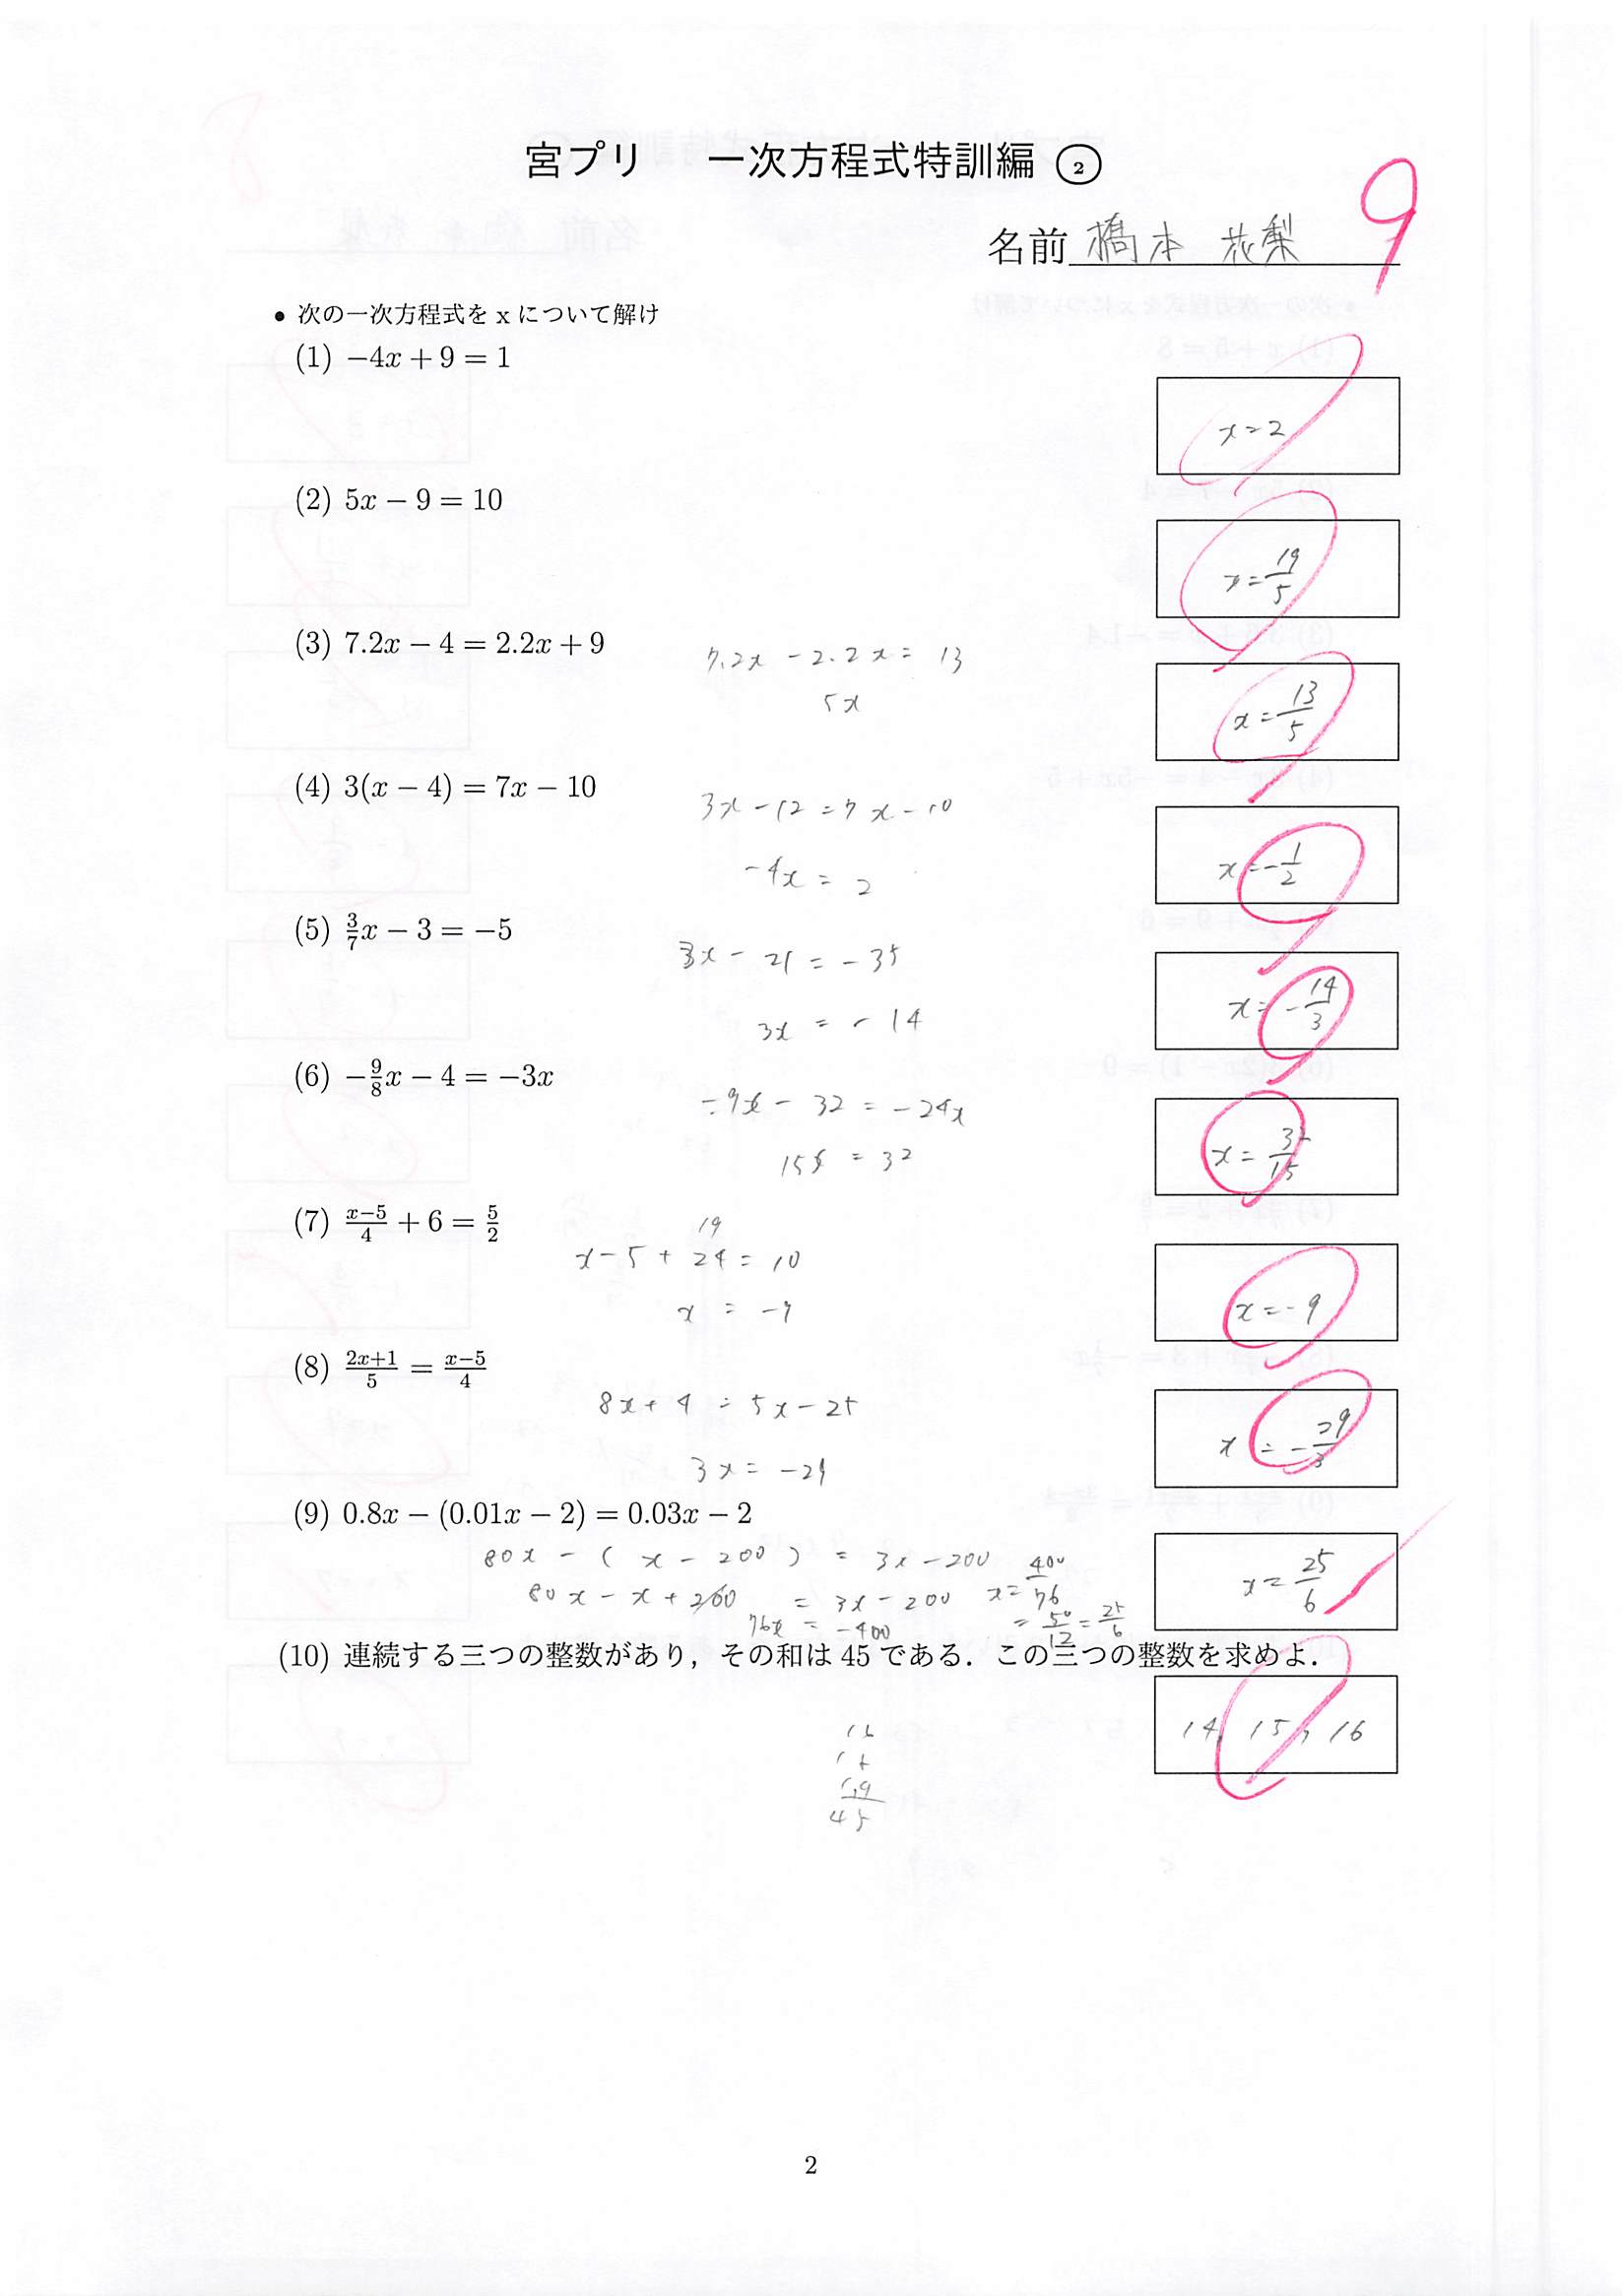 宮プリ 一次方程式特訓編 ②
9
名前 橋本 花梨
• 次の一次方程式を x について解け
(1) −4x + 9 = 1
x = 2
(2) 5x − 9 = 10
x = 19/5
(3) 7.2x − 4 = 2.2x + 9
7.2x − 2.2x = 13
5x
x = 13/5
(4) 3(x − 4) = 7x − 10
3x − 12 = 7x − 10
−4x = 2
x = −1/2
(5) 3/7x − 3 = −5
3x − 21 = −35
3x = −14
x = −14/3
(6) −9/8x − 4 = −3x
−9x − 32 = −24x
15x = 32
x = 32/15
(7) x−5/4 + 6 = 5/2
19
x − 5 + 24 = 10
x = −9
x = −9
(8) 2x+1/5 = x−5/4
8x + 4 = 5x − 25
3x = −29
x = −29/3
(9) 0.8x − (0.01x − 2) = 0.03x − 2
80x − ( x − 200 ) = 3x − 200
80x − x + 200 = 3x − 200
76x = −400
x = 400/76
= 50/12 = 25/6
x = 25/6
(10) 連続する三つの整数があり，その和は 45 である．この三つの整数を求めよ．
14, 15, 16
45
2